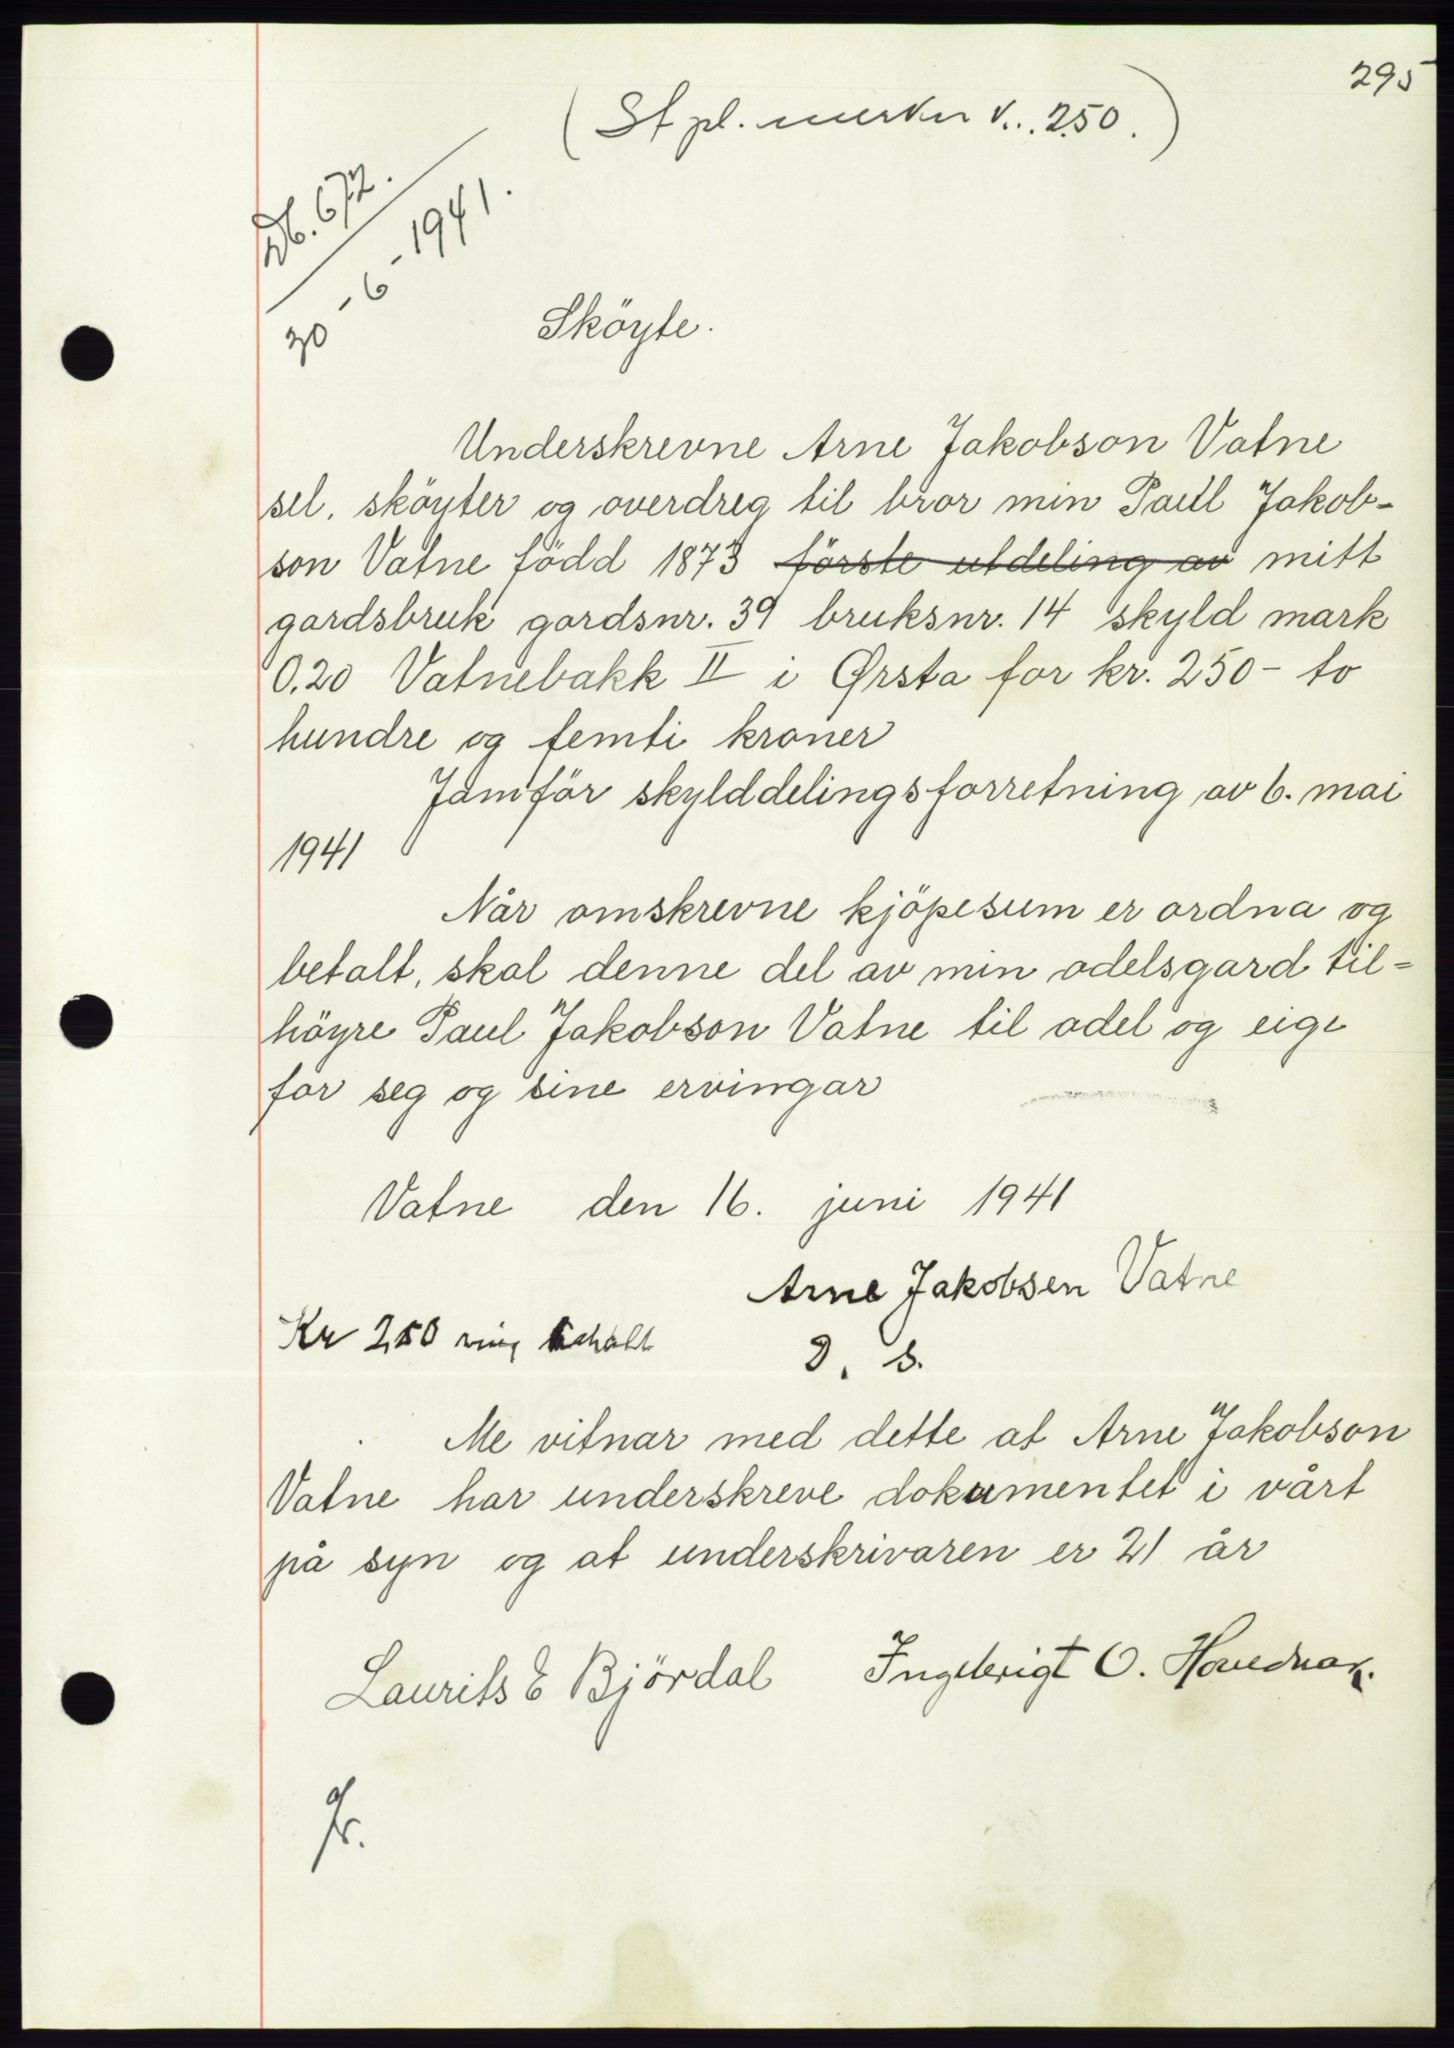 295
(Stpl.merker k. 2.50.)
Db. 672.
30-6-1941.
Sköyte.
Underskrevne Arne Jakobson Vatne
sel, sköyter og overdreg til bror min Paul Jakob-
son Vatne född 1873 förste utdeling av mitt
gardsbruk gardsnr. 39 bruksnr. 14 skyld mark
0.20 Vatnebakk II i Ørsta for kr. 250- to
hundre og femti kroner
Jamför skylddelingsforretning av 6. mai
1941
Når omskrevne kjöpesum er ordna og
betalt, skal denne del av min odelsgard til=
höyre Paul Jakobson Vatne til odel og eige
for seg og sine ervingar
Vatne den 16. juni 1941
Arne Jakobsen Vatne
Kr 250
D. S.
Me vitnar med dette at Arne Jakobson
Vatne har underskreve dokumentet i vårt
på syn og at underskrivaren er 21 år
Laurits E Björdal Ingebrigt O. Hovednak.